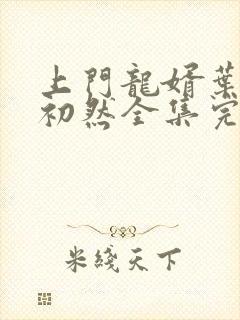 上門龍婿葉
初然全集完
米綫天下